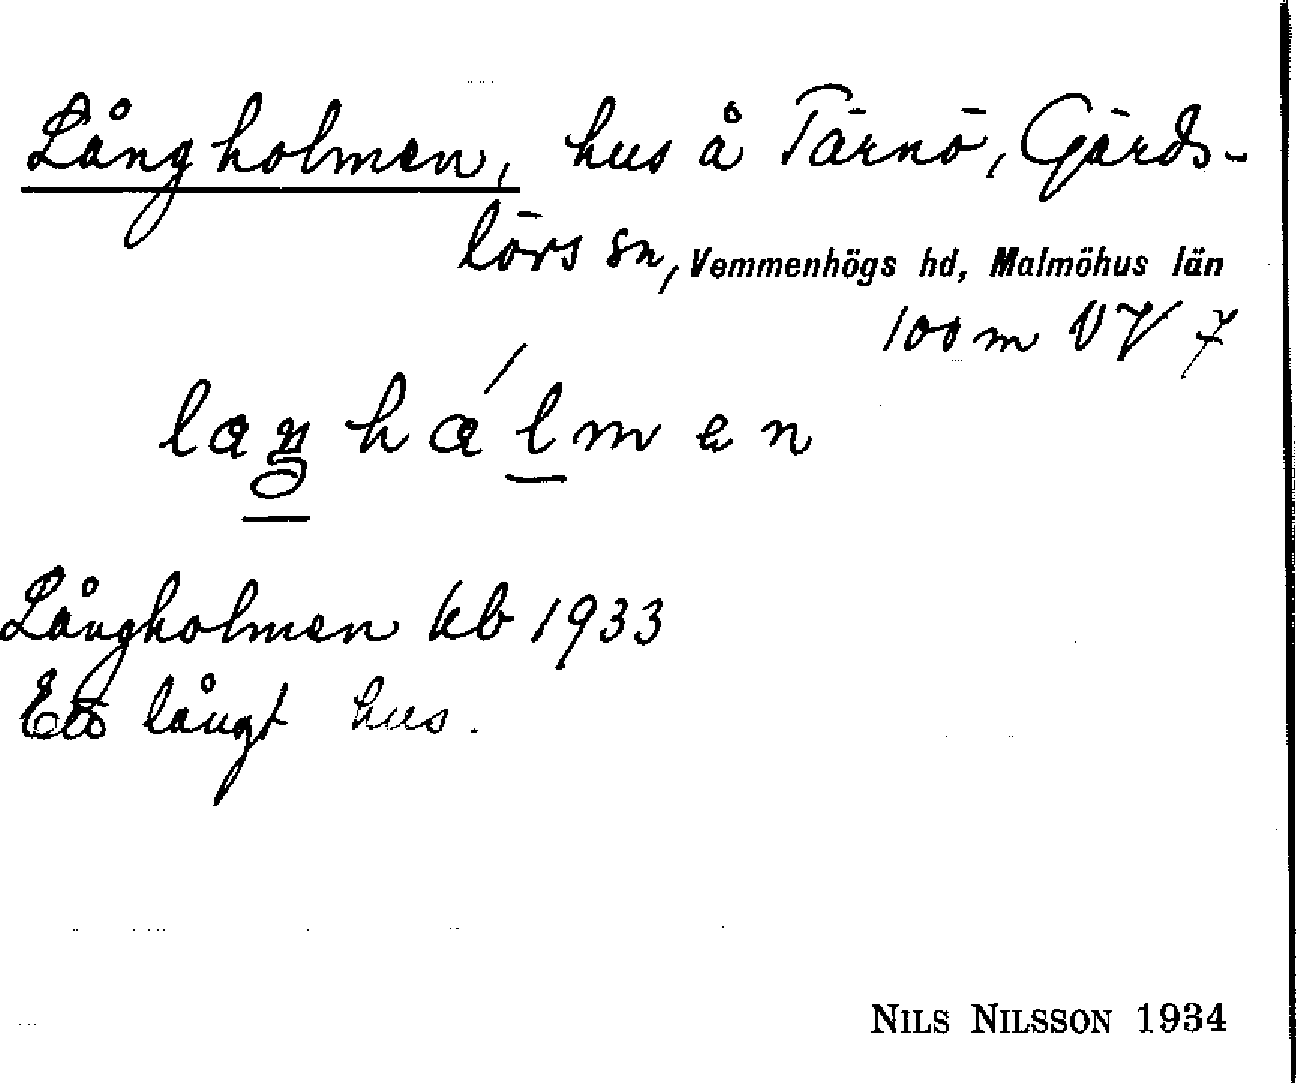 Långholmen, hus å Tärnö, Gärds-
lövs sn, Vemmenhögs hd, Malmöhus län
100 m VV 7
Långholmen kb 1933
Ett långt hus.
NILS NILSSON 1934